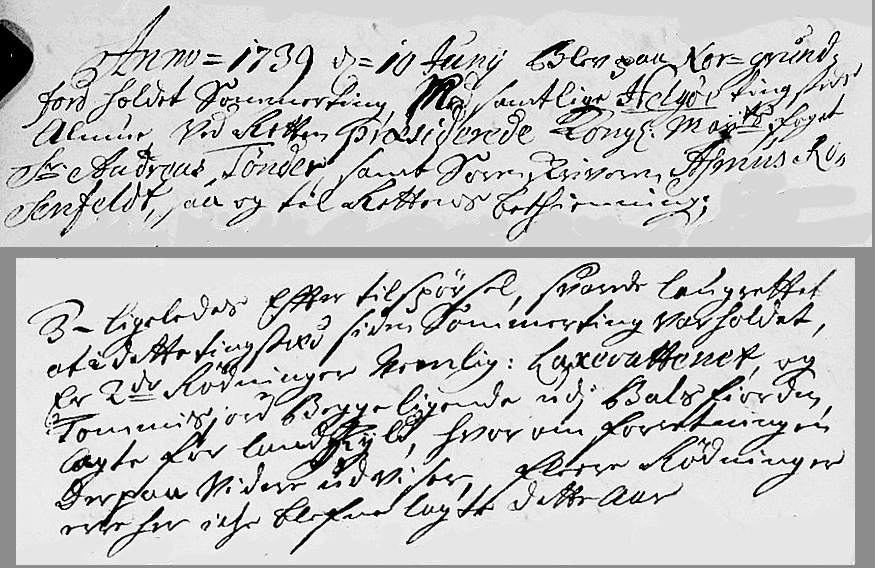 Anno = 1739 d = 10 Juny Blev paa Nor= grunds
fiord holdet Sommerting, Med samtlige Helgøe tingsteds
Almue Ved Retten Præsiderede Kongl: Maÿts foget
Sr: Andreas Tønder, samt Sorenskriveren Asmus Ro,,
senfeldt, saa og til Rettens betiening;
3 - ligeledes Efter tilspørsel, svarede laugrettet
at i dette tingsted siden Sommerting var holdet,
Er 2de Rødninger Nemlig: Laxevattenet, og
Tommisjord Begge ligende udj Balsfiorden,
lagte for landskyld, hvorom forretningen
Derpaa Videre udviser, fleere Rødninger
erre her iche blefne lagt dette Aar